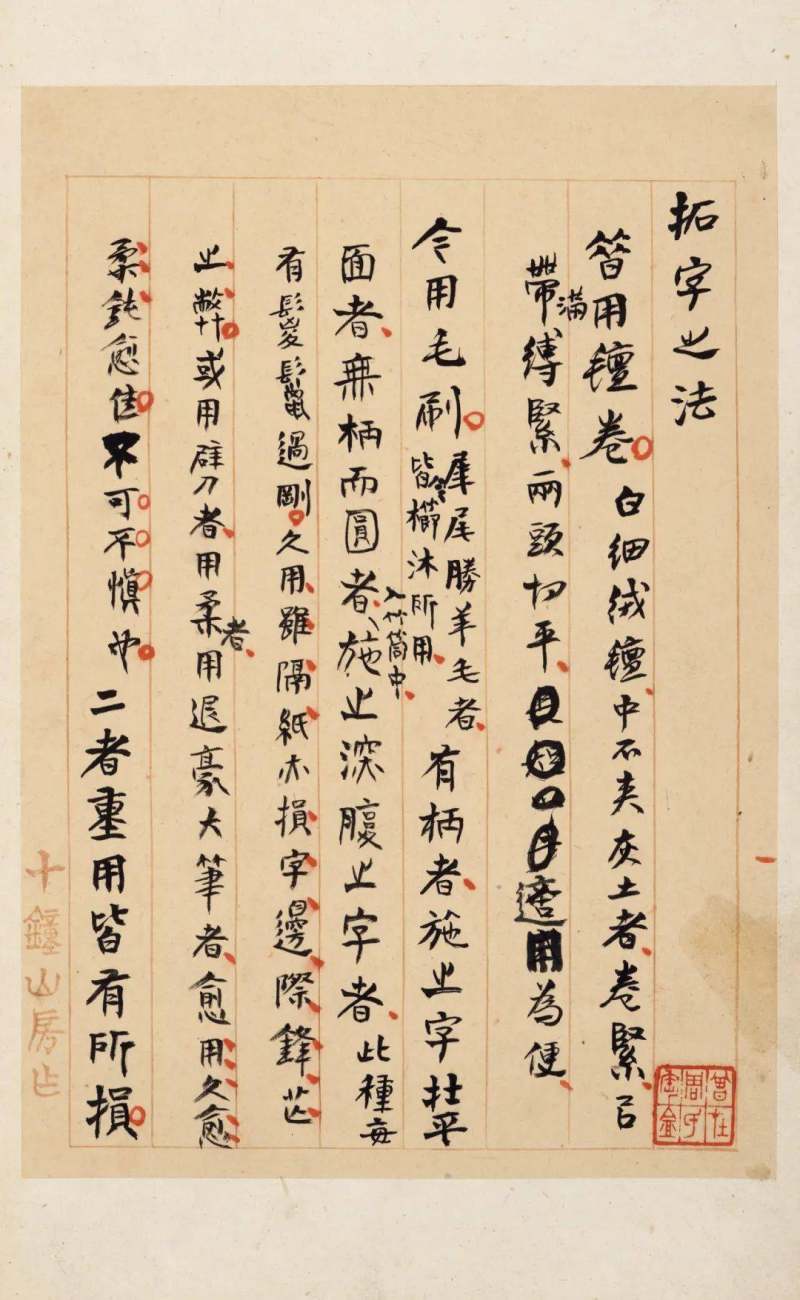 拓字之法
昔用氊卷 白細絨氊中不夾灰土者卷緊㠯
帶滿縛緊兩頭切平適用為便
今用毛刷 犀尾勝羊毛者 皆今櫛沐所用 有柄者施之字在平
面者無柄而圓者入竹筒中施之深腹之字者此種每
有髮鬣過剛久用雖隔紙亦損字邊際鋒芒
之弊或用辟刀者用柔者用退豪大筆者愈用久愈
柔鈍愈佳不可不慎也二者重用皆有所損
十鐘山房